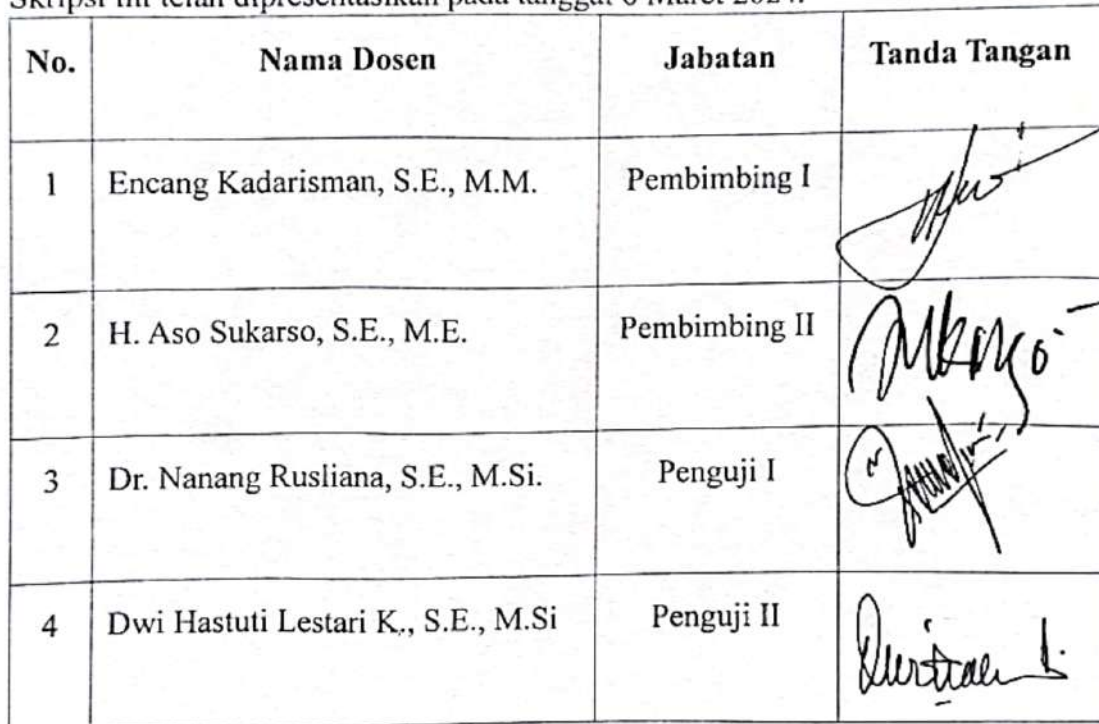 Skripsi ini telah dipresentasikan pada tanggal 6 Maret 2024.
No. Nama Dosen Jabatan Tanda Tangan
1 Encang Kadarisman, S.E., M.M. Pembimbing I
2 H. Aso Sukarso, S.E., M.E. Pembimbing II
3 Dr. Nanang Rusliana, S.E., M.Si. Penguji I
4 Dwi Hastuti Lestari K., S.E., M.Si Penguji II